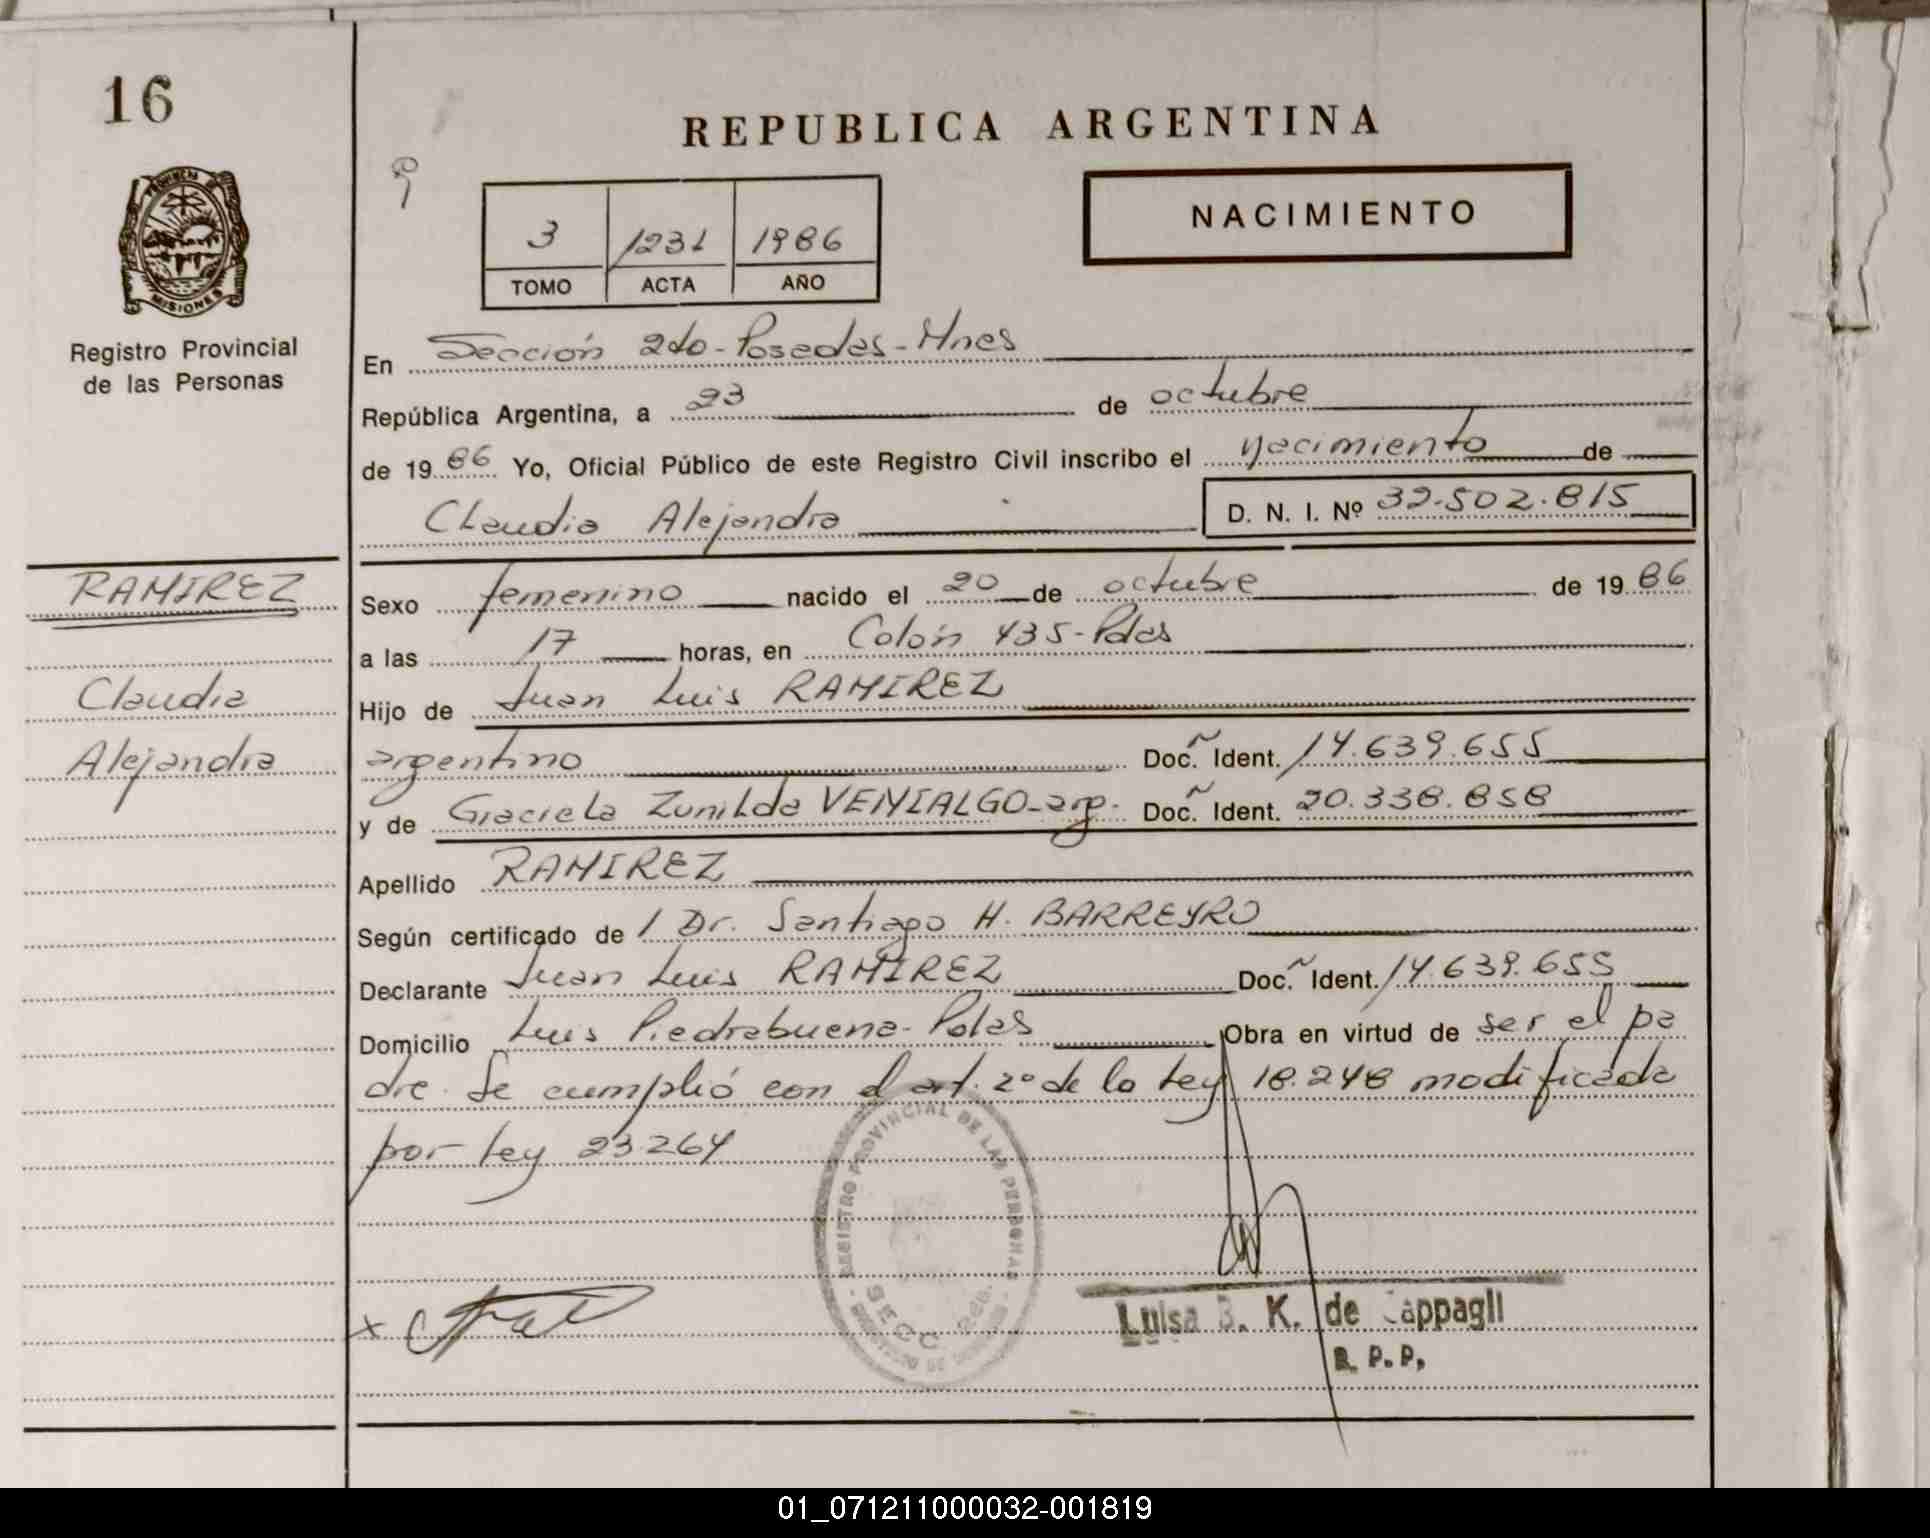 16
REPUBLICA ARGENTINA
PROVINCIA DE
MISIONES
Registro Provincial
de las Personas
3 1231 1986
TOMO ACTA AÑO
NACIMIENTO
En Sección 2do-Posadas-Mnes
República Argentina, a 23 de octubre
de 1986 Yo, Oficial Público de este Registro Civil inscribo el nacimiento de
Claudia Alejandra D. N. I. Nº 32.502.815
RAMIREZ
Claudia
Alejandra
Sexo femenino nacido el 20 de octubre de 1986
a las 17 horas, en Colón 435-Pdas
Hijo de Juan Luis RAMIREZ
argentino Doc. Ident. 14.639.655
y de Graciela Zunilda VENIALGO-arg. Doc. Ident. 20.338.858
Apellido RAMIREZ
Según certificado de 1 Dr. Santiago H. BARREYRO
Declarante Juan Luis RAMIREZ Doc. Ident. 14.639.655
Domicilio Luis Piedrabuena-Pdas Obra en virtud de ser el pa
dre. Se cumplió con el art. 2º de la Ley 18.248 modificada
por Ley 23.264
REGISTRO PROVINCIAL DE LAS PERSONAS
SECC
Luisa B. K. de Cappagli
R. P. P.
01_071211000032-001819